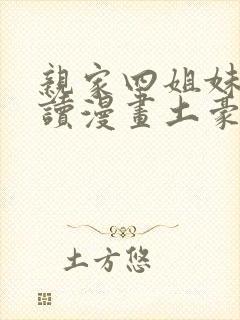 親家四姐妹
讀漫畫土豪
土方悠